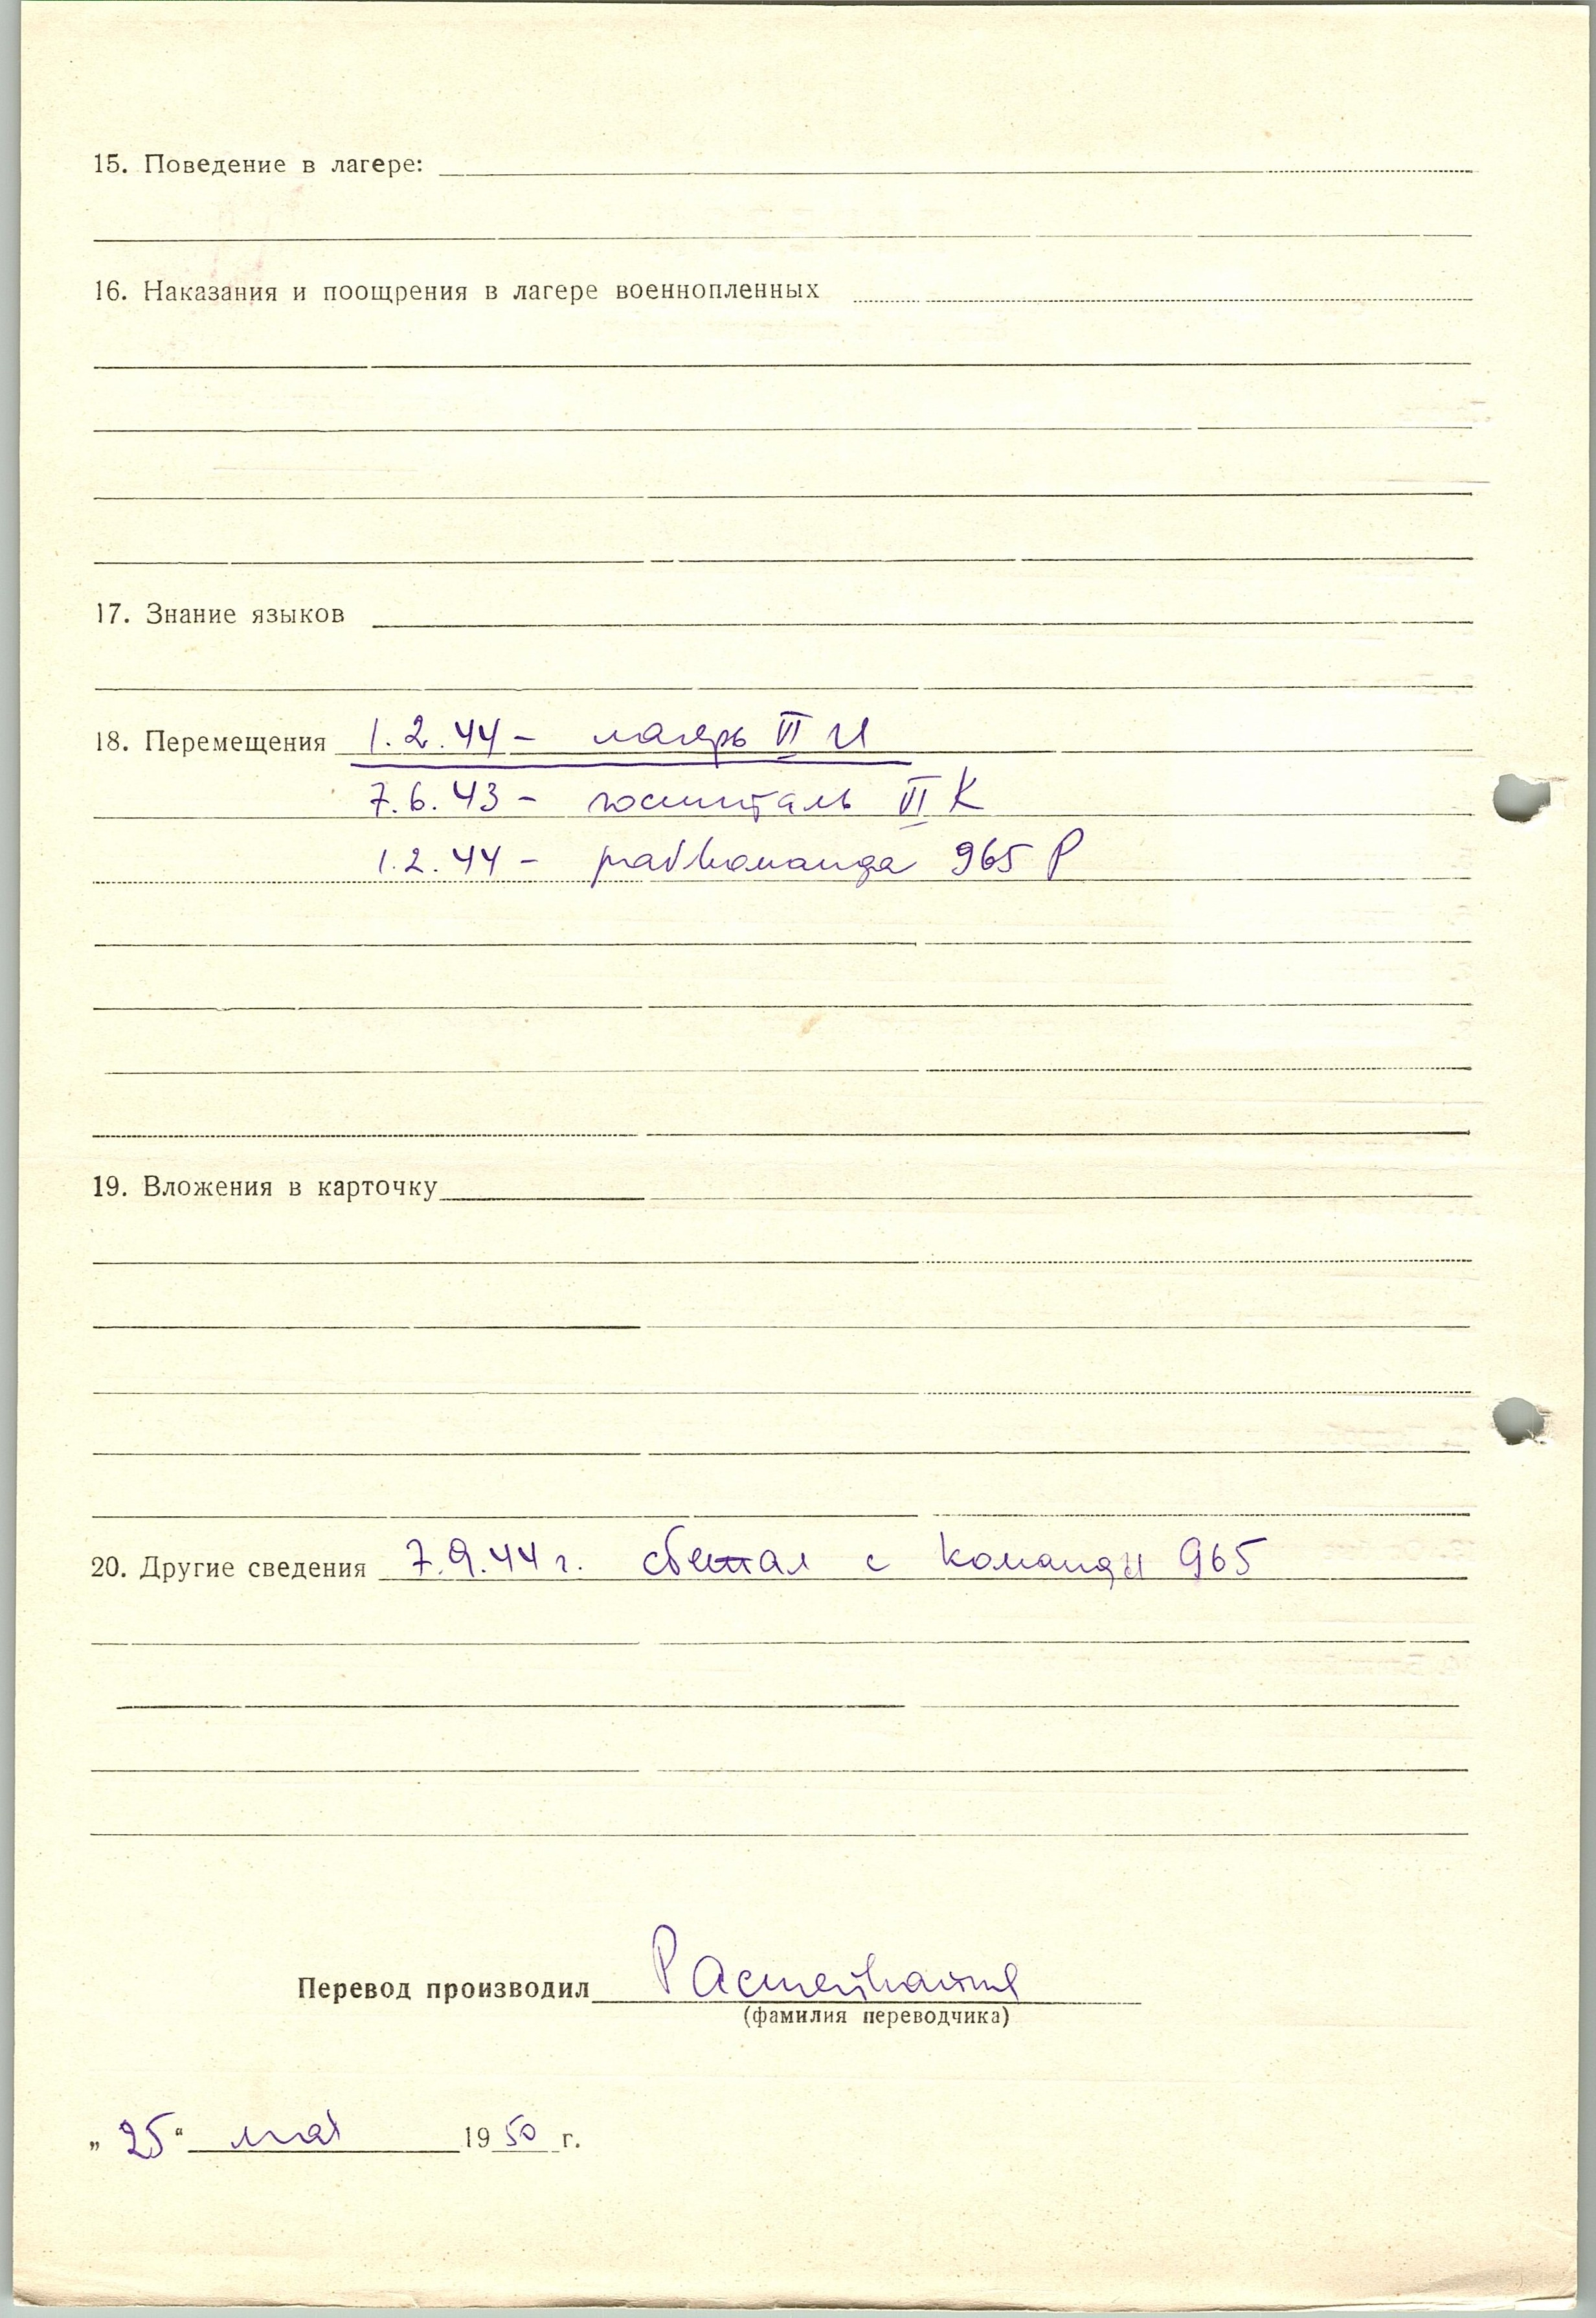 15. Поведение в лагере:
16. Наказания и поощрения в лагере военнопленных
17. Знание языков
18. Перемещения 1.2.44 - лагерь VI
7.6.43 - госпиталь VI К
1.2.44 - рабкоманда 965 Р
19. Вложения в карточку
20. Другие сведения 7.9.44 г. сбежал с команды 965
Перевод производил
(фамилия переводчика)
„25“ мая 1950 г.